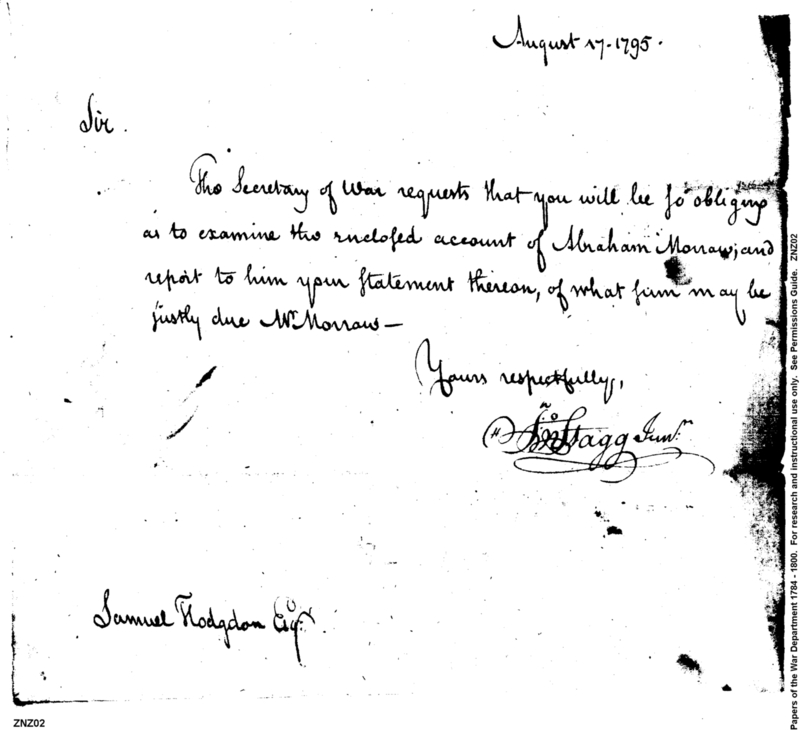 August 17-1795.
Sir.
The Secretary of War requests that you will be so obliging
as to examine the enclosed account of Abraham Morraw; and
report to him your statement thereon, of what sum may be
justly due Mr. Morraw—
Yours respectfully,
Jno. Stagg Junr.
Samuel Hodgdon Esqr.
ZNZ02
Papers of the War Department 1784 - 1800. For research and instructional use only. See Permissions Guide. ZNZ02